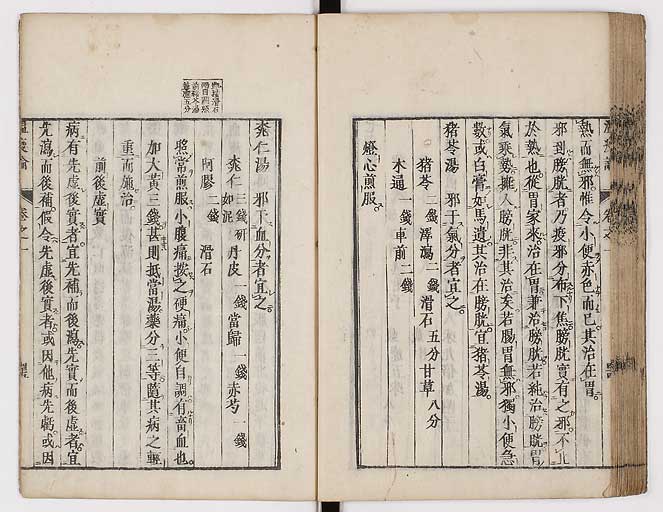 熱而無邪惟令小便赤色而已其治在胃
邪到膀胱者乃疫邪分布下焦膀胱實有之邪不止
於熱也從胃家來治在胃兼治膀胱若純治膀胱胃
氣乘勢擁入膀胱非其治矣若腸胃無邪獨小便急
數或白膏如馬遺其治在膀胱宜猪苓湯
猪苓湯　邪干氣分者宜之
猪苓　二錢　澤瀉　二錢　滑石　五分　甘草　八分
木通　一錢　車前　二錢
燈心煎服
桃仁湯　邪干血分者宜之
桃仁　三錢研如泥　丹皮　一錢　當歸　一錢　赤芍　一錢
阿膠　二錢　滑石
照常煎服小腹痛按之硬痛小便自調有畜血也
加大黃三錢甚則抵當湯藥分三等隨其病之輕
重而施治
前後虛實
病有先虛後實者宜先補而後瀉先實而後虛者宜
先瀉而後補假令先虛後實者或因他病先虧或因